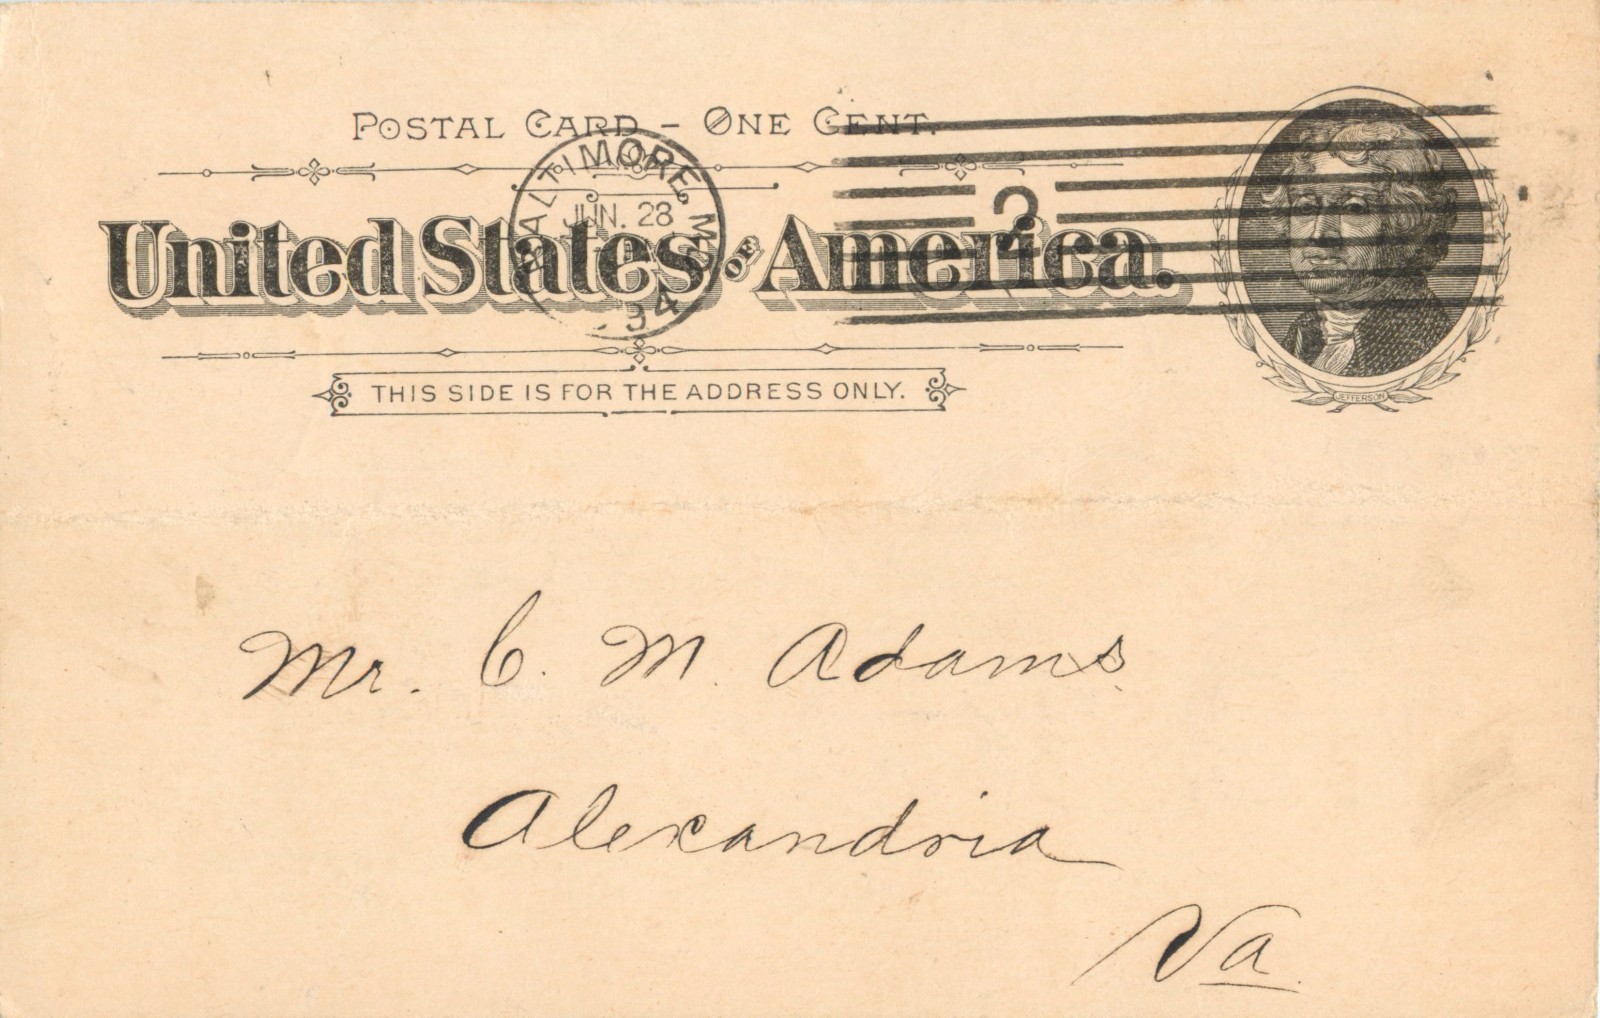 POSTAL CARD – ONE CENT.
United States OF America.
BALTIMORE, MD.
JUN. 28
94
2
THIS SIDE IS FOR THE ADDRESS ONLY.
JEFFERSON
Mr. C. M. Adams
Alexandria
Va.